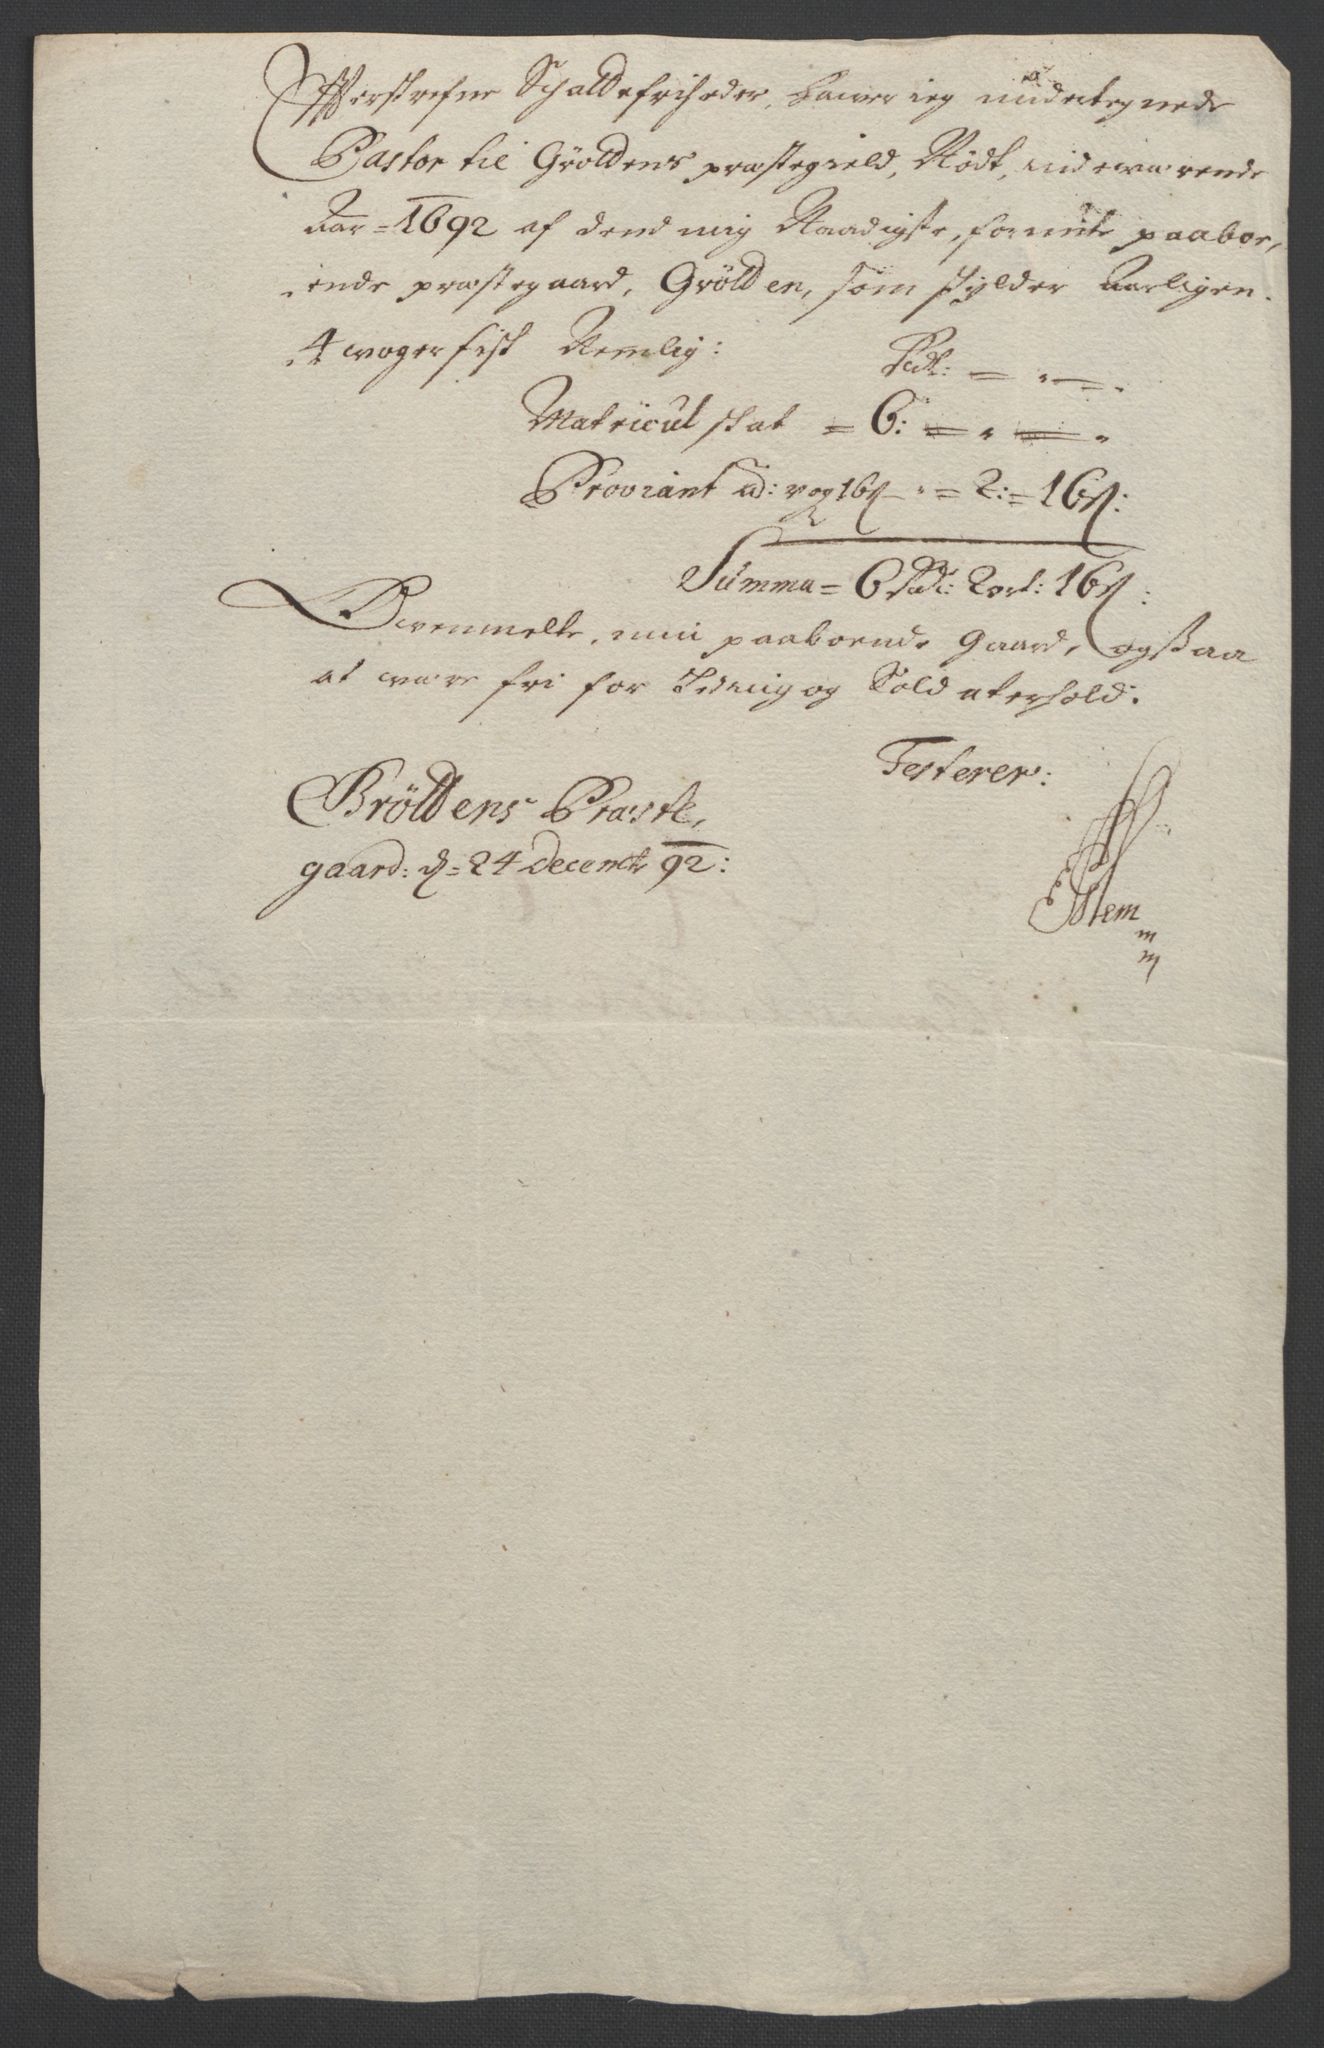 Efferskrefne Schattefriheder, hawer ieg undertegnede
Pastor til Grÿttens præstegield, Nÿdt, indewærende
Aar = 1692 af dend mig Naadigste, forunte paaboe,
ende præstegaard, Grÿtten, som skylder Aarligen
4 woger fisk Nemlig: Rdl:
Matricul skat = 6:
Proviant ad: vog 16ß = 2: = 16ß:
Summa = 6 Rdl: 2 ort: 16ß:
Owenmelte, min paaboende Gaard, ogsaa
at være fri for Leding og Soldaterhold.
Testerer:
Grÿttens Præste,
gaard: d = 24 decembr 92: